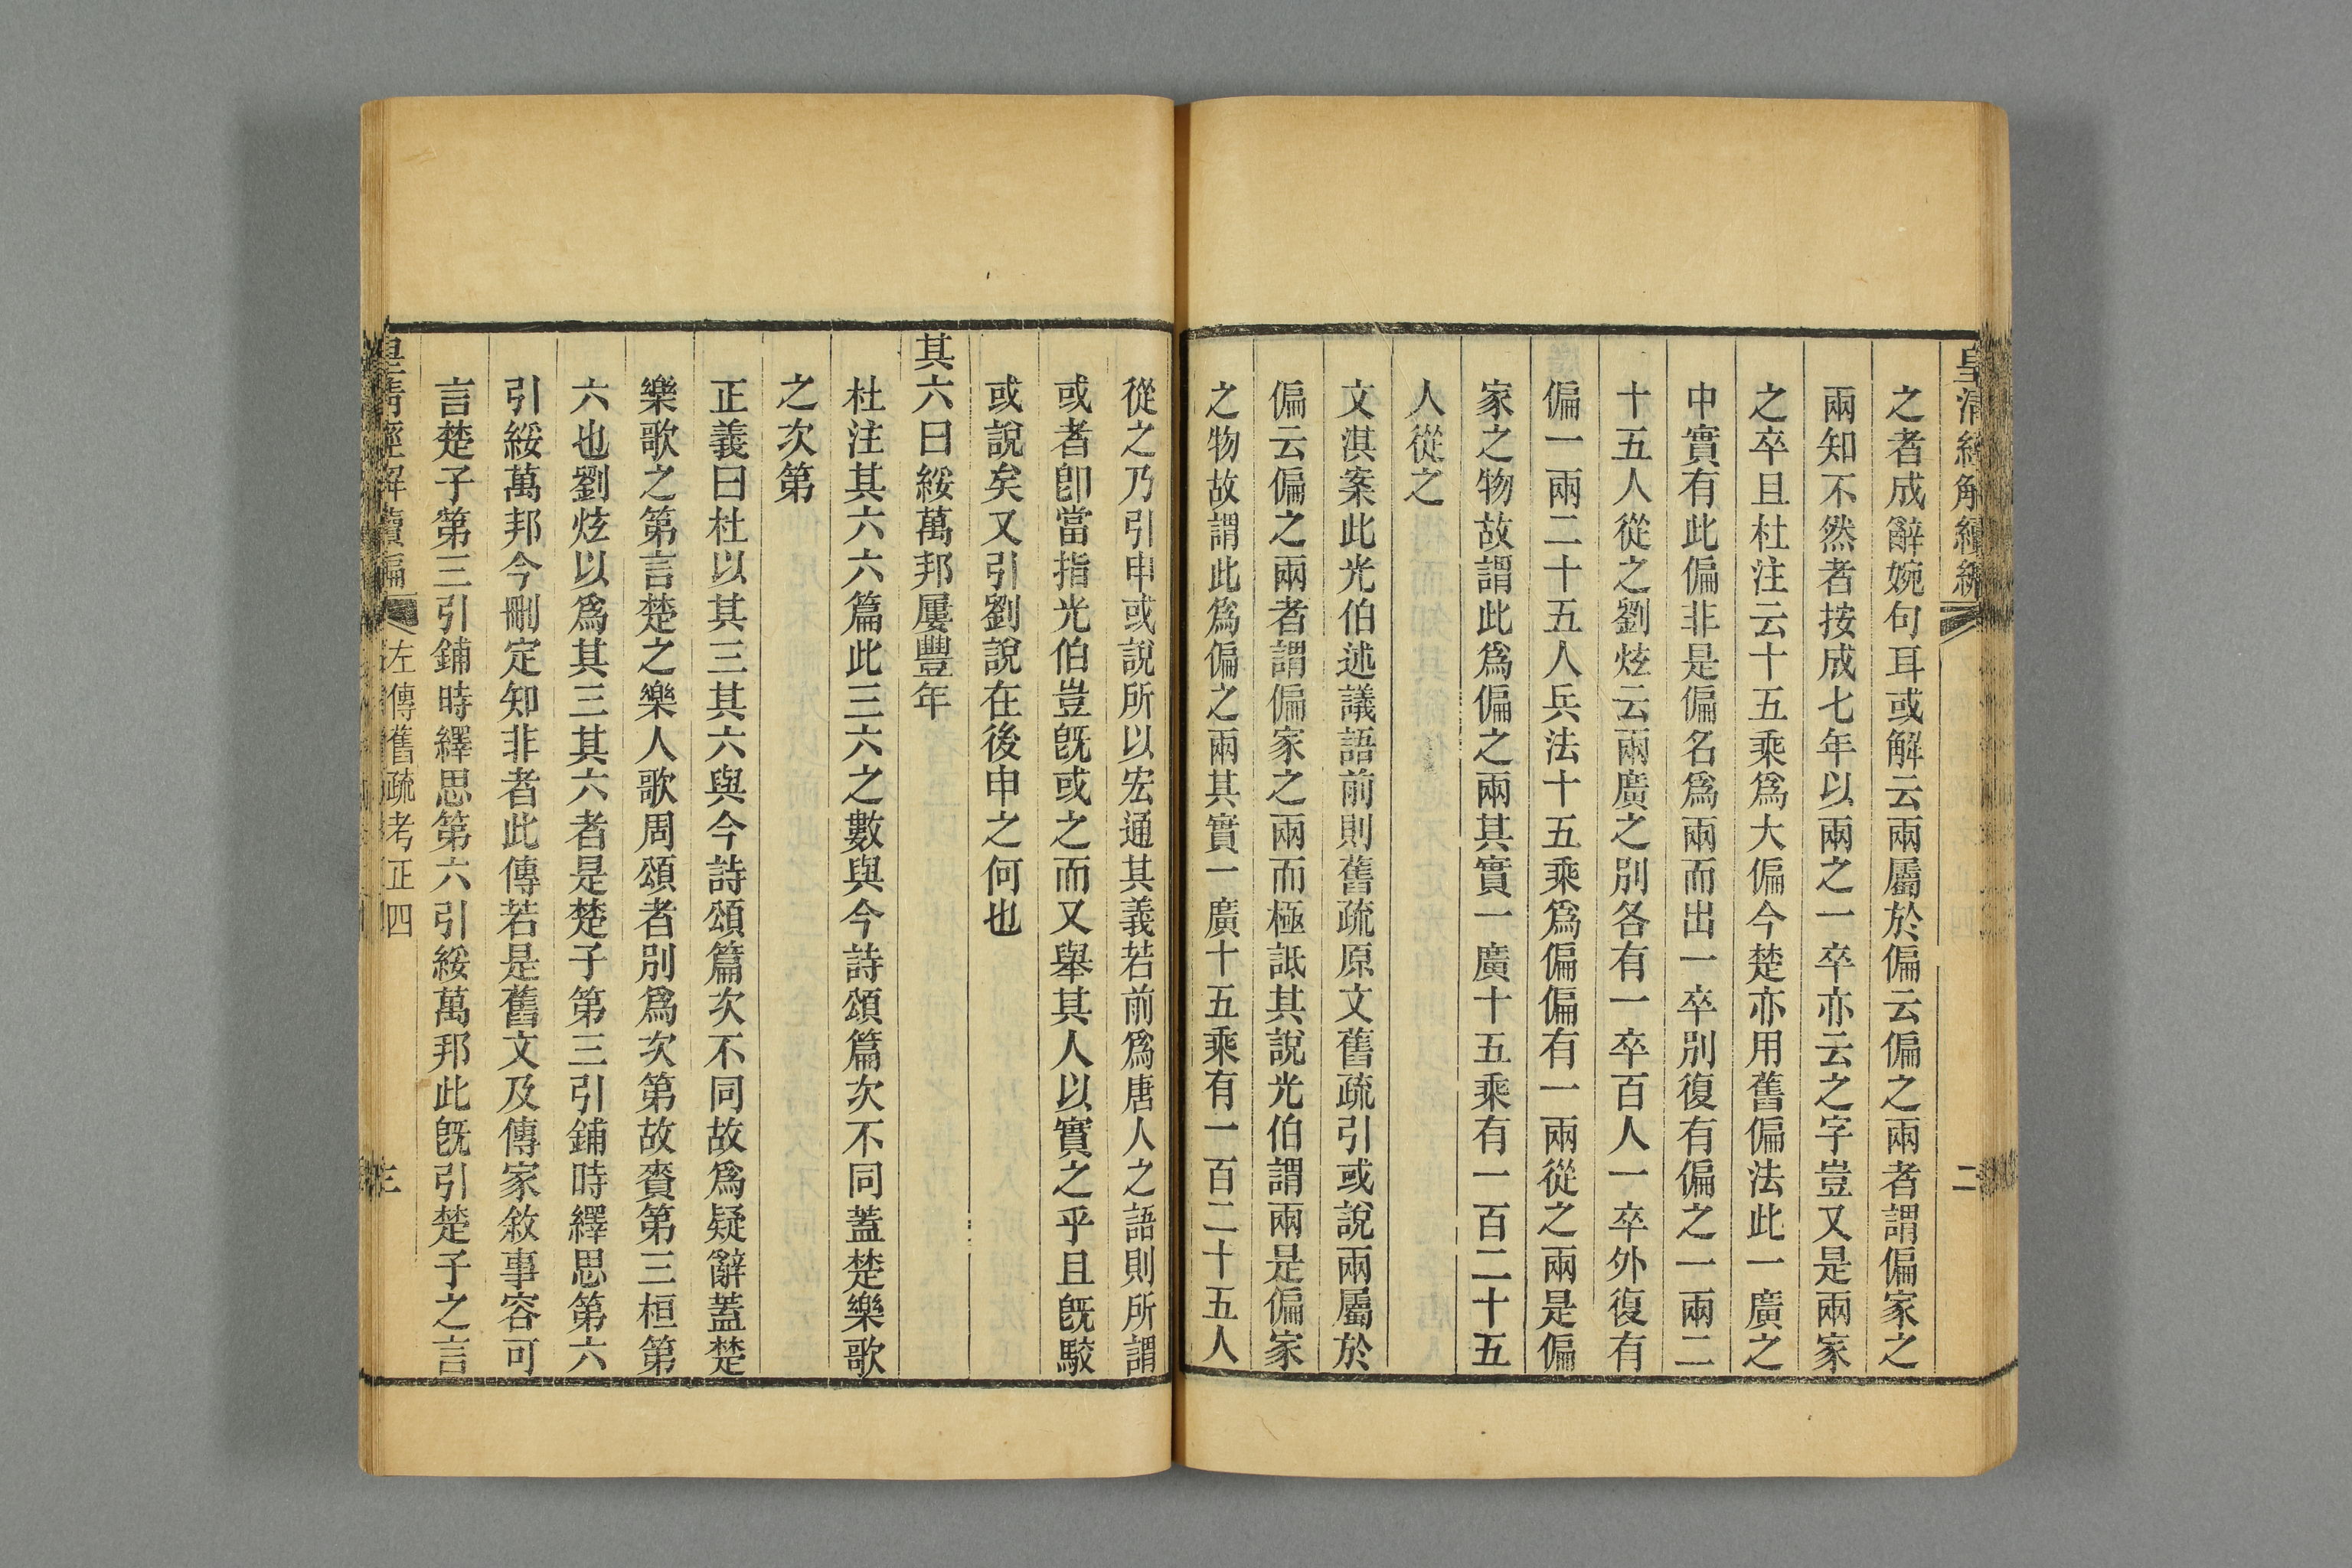 皇清經解續編
二
之者成辭婉句耳或解云兩屬於偏云偏之兩者謂偏家之
兩知不然者按成七年以兩之一卒亦云之字豈又是兩家
之卒且杜注云十五乘爲大偏今楚亦用舊偏法此一廣之
中實有此偏非是偏名爲兩而出一卒別復有偏之一兩二
十五人從之劉炫云兩廣之別各有一卒百人一卒外復有
偏一兩二十五人兵法十五乘爲偏偏有一兩從之兩是偏
家之物故謂此爲偏之兩其實一廣十五乘有一百二十五
人從之
文淇案此光伯述議語前則舊疏原文舊疏引或說兩屬於
偏云偏之兩者謂偏家之兩而極詆其說光伯謂兩是偏家
之物故謂此爲偏之兩其實一廣十五乘有一百二十五人
從之乃引申或說所以宏通其義若前爲唐人之語則所謂
或者卽當指光伯豈旣或之而又舉其人以實之乎且旣駮
或說矣又引劉說在後申之何也
其六曰綏萬邦屢豐年
杜注其六六篇此三六之數與今詩頌篇次不同蓋楚樂歌
之次第
正義曰杜以其三其六與今詩頌篇次不同故爲疑辭蓋楚
樂歌之第言楚之樂人歌周頌者別爲次第故賚第三桓第
六也劉炫以爲其三其六者是楚子第三引鋪時繹思第六
引綏萬邦今刪定知非者此傳若是舊文及傳家敘事容可
言楚子第三引鋪時繹思第六引綏萬邦此旣引楚子之言
皇清經解續編
左傳舊疏考正四
三